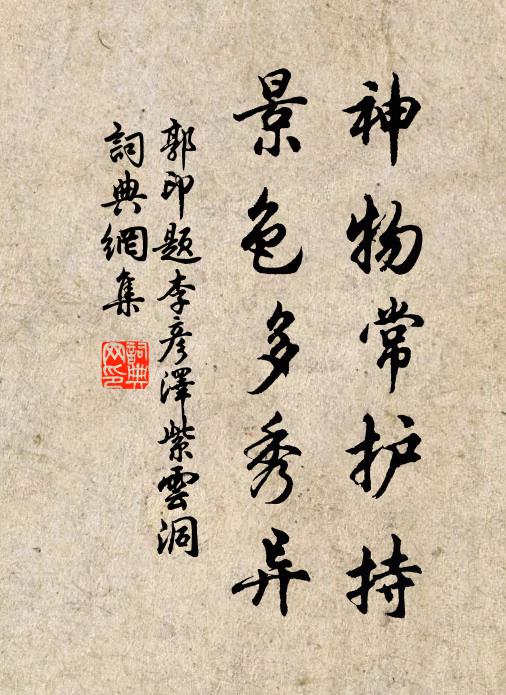 神物常护持
景色多秀异
郭印题李彦澤紫雲洞
詞典網集
詞典网印